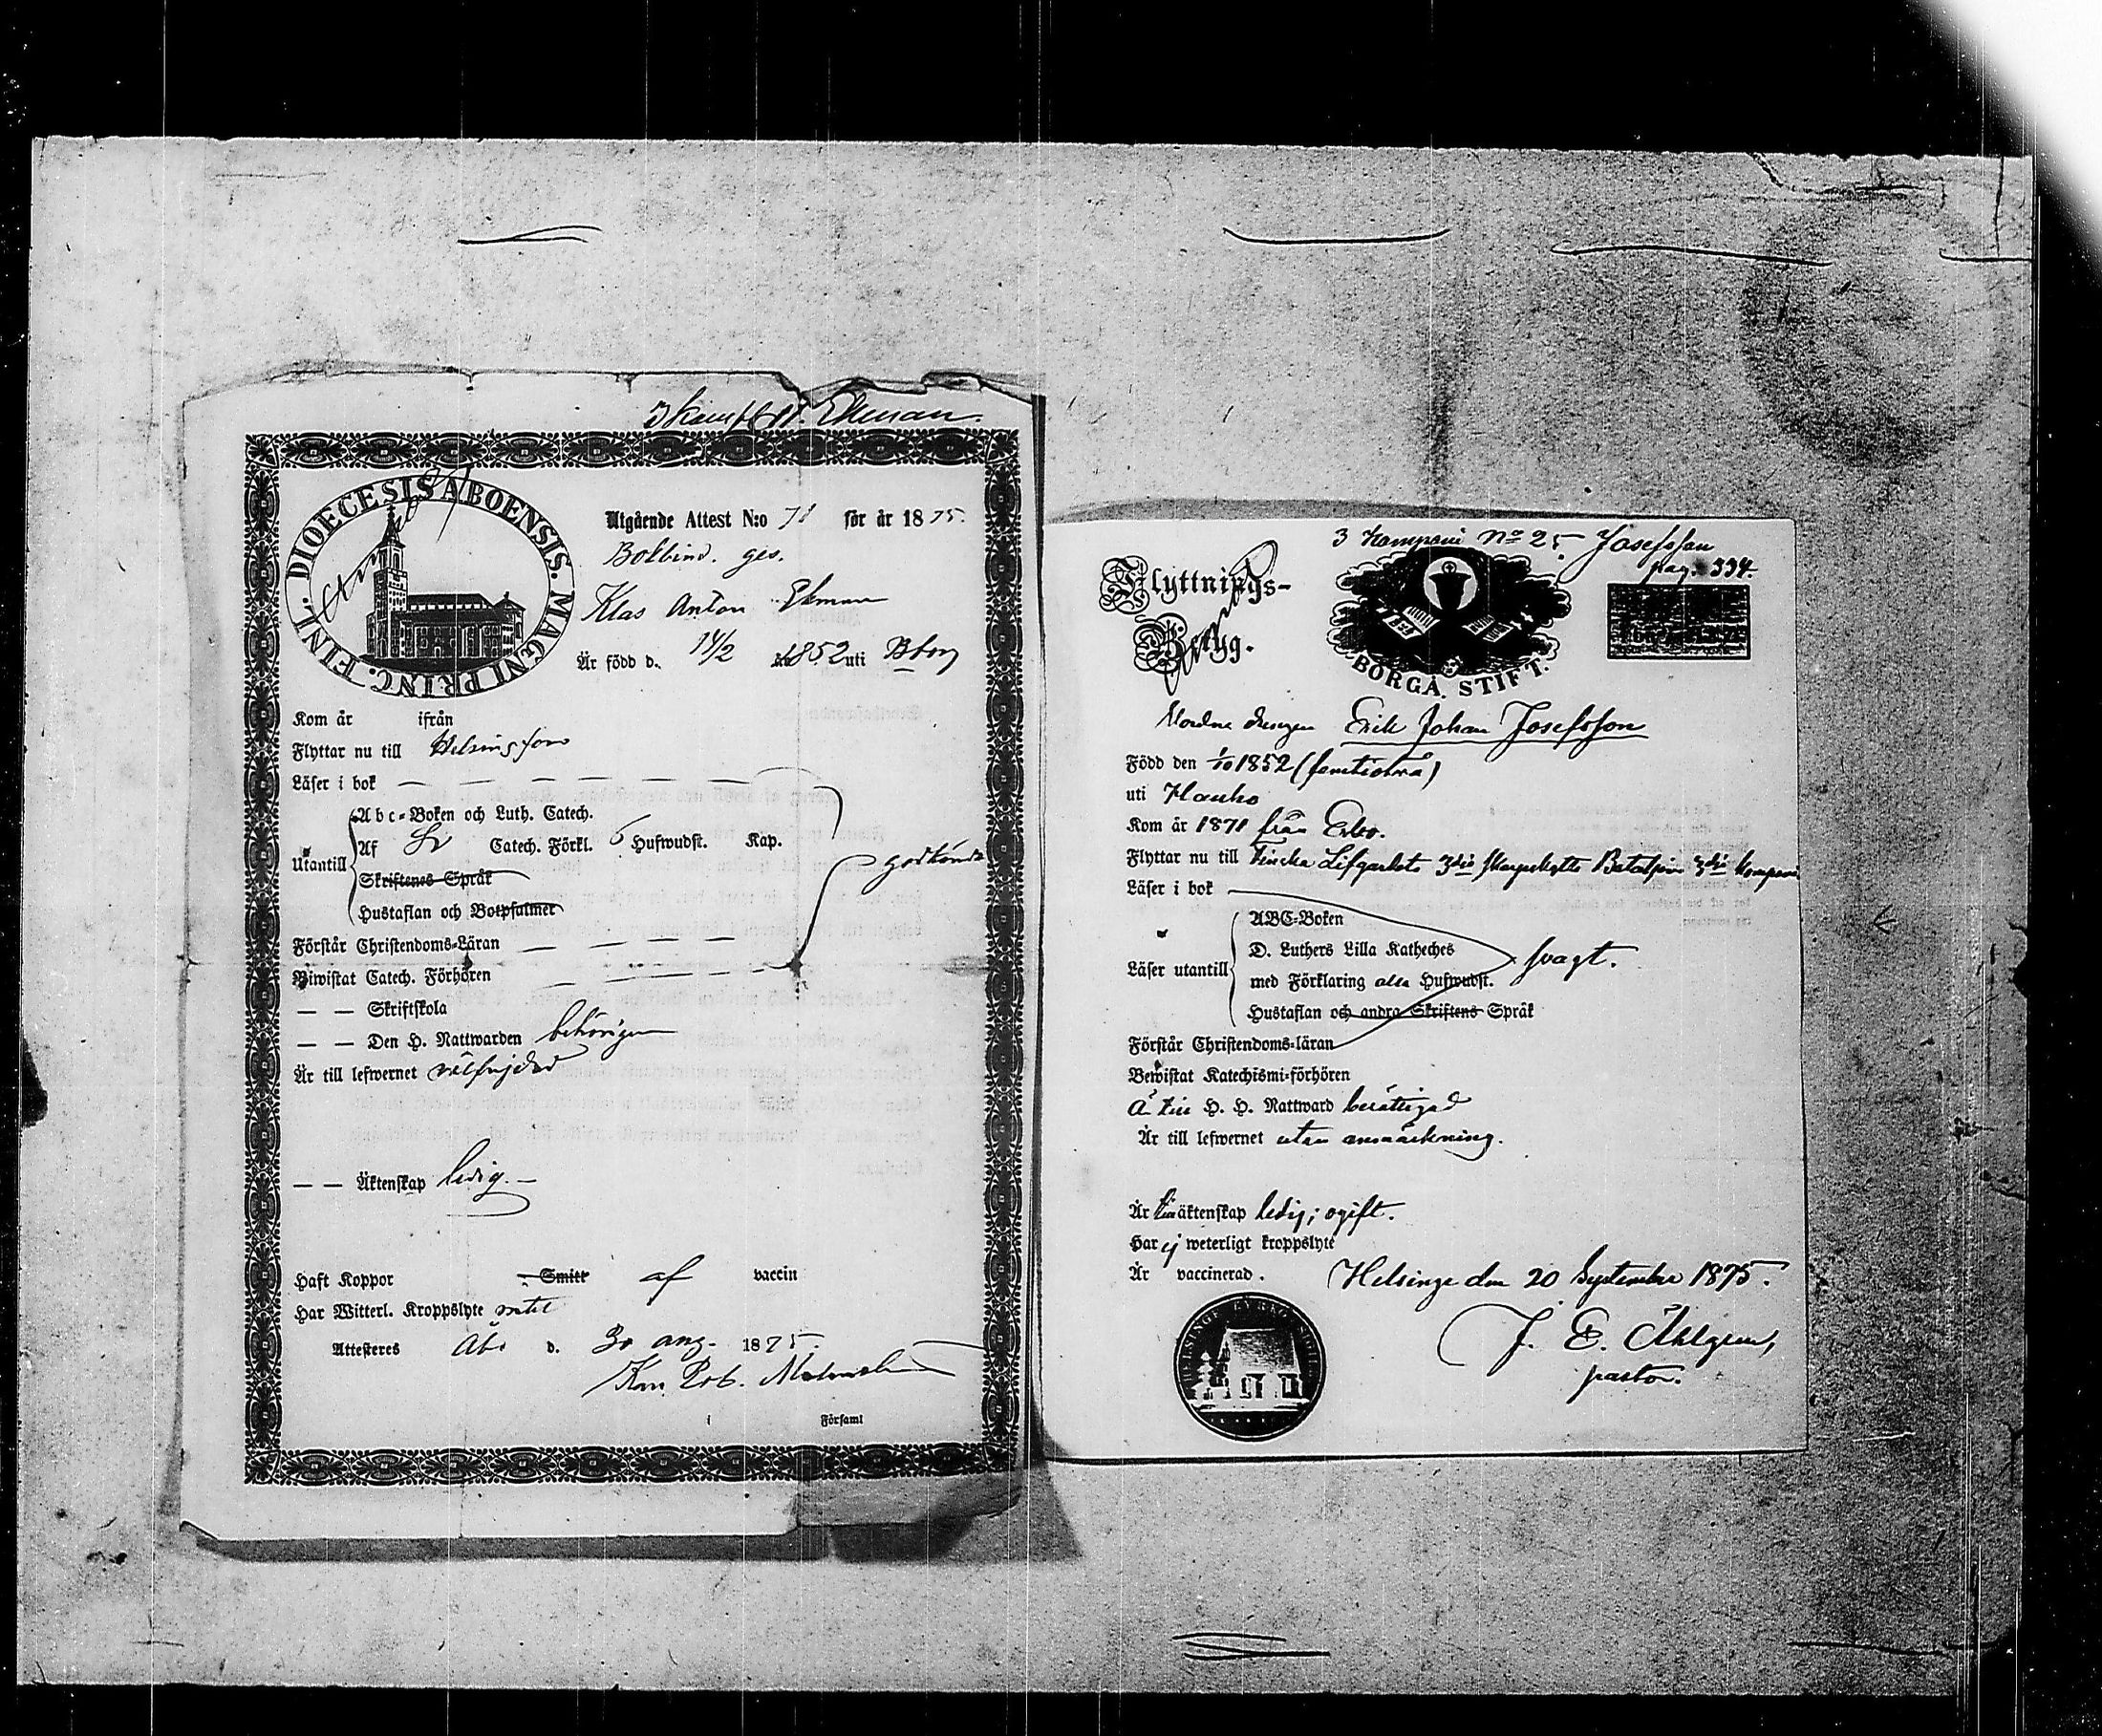 3 Komp Ekman.
DIOECESIS ABOENSIS. MAGNI PRINC. FINL.
Utgående Attest N:o 71 för år 1875.
Bokbind. ges.
Klas Anton Ekman
Är född d. 14/2 1852 uti Åbo
Kom år ifrån
Flyttar nu till Helsingfors
Läser i bok — — — — — — —
Utantill
Abc-Boken och Luth. Catech.
Af Sv Catech. Förkl. 6 Hufwudst. Kap.
Skriftenes Språk
Hustaflan och Botpsalmer
godkända
Förstår Christendoms-Läran — — — — —
Biwistat Catech. Förhören — — — — —
— — Skriftskola
— — Den H. Nattwarden behörigen
Är till lefwernet välfrejdad
— — Äktenskap ledig. —
Haft Koppor Smitt af vaccin
Har Witterl. Kroppslyte intet
Attesteres Åbo d. 30 aug. 1875.
i Församl
3 Kompani No 25 Josefsson
pag. 334.
Flyttnings-
Betyg.
BORGÅ STIFT.
drengen Erik Johan Josefsson
Född den 1/10 1852 (femtiotvå)
uti Hauho
Kom år 1871 från Esbo.
Flyttar nu till Finska Lifgardets 3dje Skarpskytte Bataljon 3dje Kompani
Läser i bok
Läser utantill
ABC-Boken
D. Luthers Lilla Katheches
med Förklaring alla Hufwudst.
Hustaflan och andra Skriftens Språk
svagt.
Förstår Christendoms-läran
Bewistat Katechismi-förhören
Å till H. H. Nattward berättigad
Är till lefwernet utan anmärkning.
Är till äktenskap ledig; ogift.
Har ej weterligt kroppslyte
Är vaccinerad. Helsinge den 20 September 1875.
J. E. Åhlgren,
pastor.